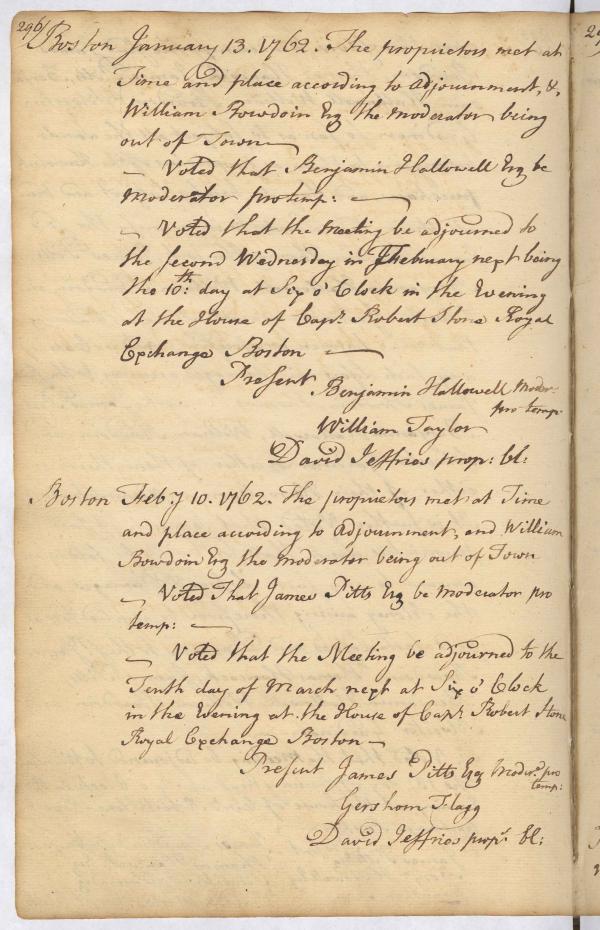 296/
Boston January 13. 1762. The proprietors met at
Time and place according to adjournment, &,
William Bowdoin Esq the moderator being
out of Town —
— Voted that Benjamin Hallowell Esq be
moderator pro temp: —
— Voted that the meeting be adjourned to
the second Wednesday in February next being
the 10th: day at Six o' Clock in the Evening
at the House of Capt. Robert Stone Royal
Exchange Boston —
Present Benjamin Hallowell Moder.
pro temp.
William Taylor
David Jeffries prop: Cl:
Boston Feby 10. 1762. The proprietors met at Time
and place according to adjournment, and William
Bowdoin Esq the moderator being out of Town
— Voted That James Pitts Esq be moderator pro
temp: —
— Voted that the Meeting be adjourned to the
Tenth day of March next at Six o' Clock
in the Evening at the House of Capt. Robert Stone
Royal Exchange Boston —
Present James Pitts Esq Moder. pro
temp:
Gershom Flagg
David Jeffries prop. Cl: